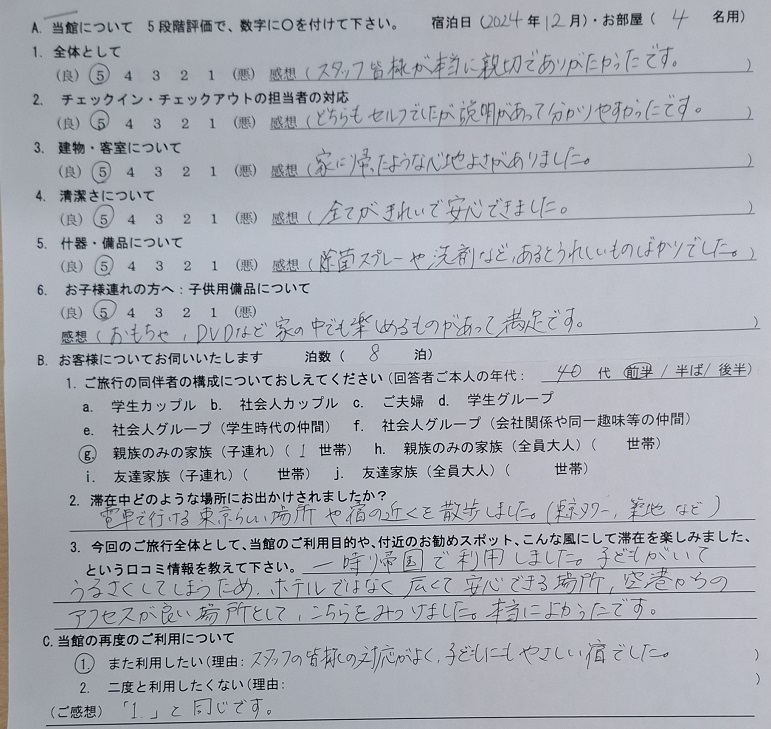 A. 当館について 5段階評価で、数字に○を付けて下さい。 宿泊日(2024年12月)・お部屋( 4 名用)
1. 全体として
(良) 5 4 3 2 1 (悪) 感想(スタッフ皆様が本当に親切でありがたかったです。)
2. チェックイン・チェックアウトの担当者の対応
(良) 5 4 3 2 1 (悪) 感想(どちらもセルフでしたが説明があって分かりやすかったです。)
3. 建物・客室について
(良) 5 4 3 2 1 (悪) 感想(家に帰ったような心地よさがありました。)
4. 清潔さについて
(良) 5 4 3 2 1 (悪) 感想(全てがきれいで安心できました。)
5. 什器・備品について
(良) 5 4 3 2 1 (悪) 感想(除菌スプレーや洗剤など、あるとうれしいものばかりでした。)
6. お子様連れの方へ:子供用備品について
(良) 5 4 3 2 1 (悪)
感想(おもちゃ、DVDなど家の中でも楽しめるものがあって満足です。)
B. お客様についてお伺いいたします 泊数( 8 泊)
1. ご旅行の同伴者の構成についておしえてください(回答者ご本人の年代: 40 代 前半/半ば/後半)
a. 学生カップル b. 社会人カップル c. ご夫婦 d. 学生グループ
e. 社会人グループ(学生時代の仲間) f. 社会人グループ(会社関係や同一趣味等の仲間)
g. 親族のみの家族(子連れ)( 1 世帯) h. 親族のみの家族(全員大人)( 世帯)
i. 友達家族(子連れ)( 世帯) j. 友達家族(全員大人)( 世帯)
2. 滞在中どのような場所にお出かけされましたか?
電車で行ける東京らしい場所や宿の近くを散歩しました。(東京タワー、築地など)
3. 今回のご旅行全体として、当館のご利用目的や、付近のお勧めスポット、こんな風にして滞在を楽しみました、
という口コミ情報を教えて下さい。一時り帰国で利用しました。子どもがいて
うるさくしてしまうため、ホテルではなく広くて安心できる場所、空港からの
アクセスが良い場所として、こちらをみつけました。本当によかったです。
C. 当館の再度のご利用について
1. また利用したい(理由:スタッフの皆様の対応がよく、子どもにもやさしい宿でした。)
2. 二度と利用したくない(理由: )
(ご感想)「1.」と同じです。